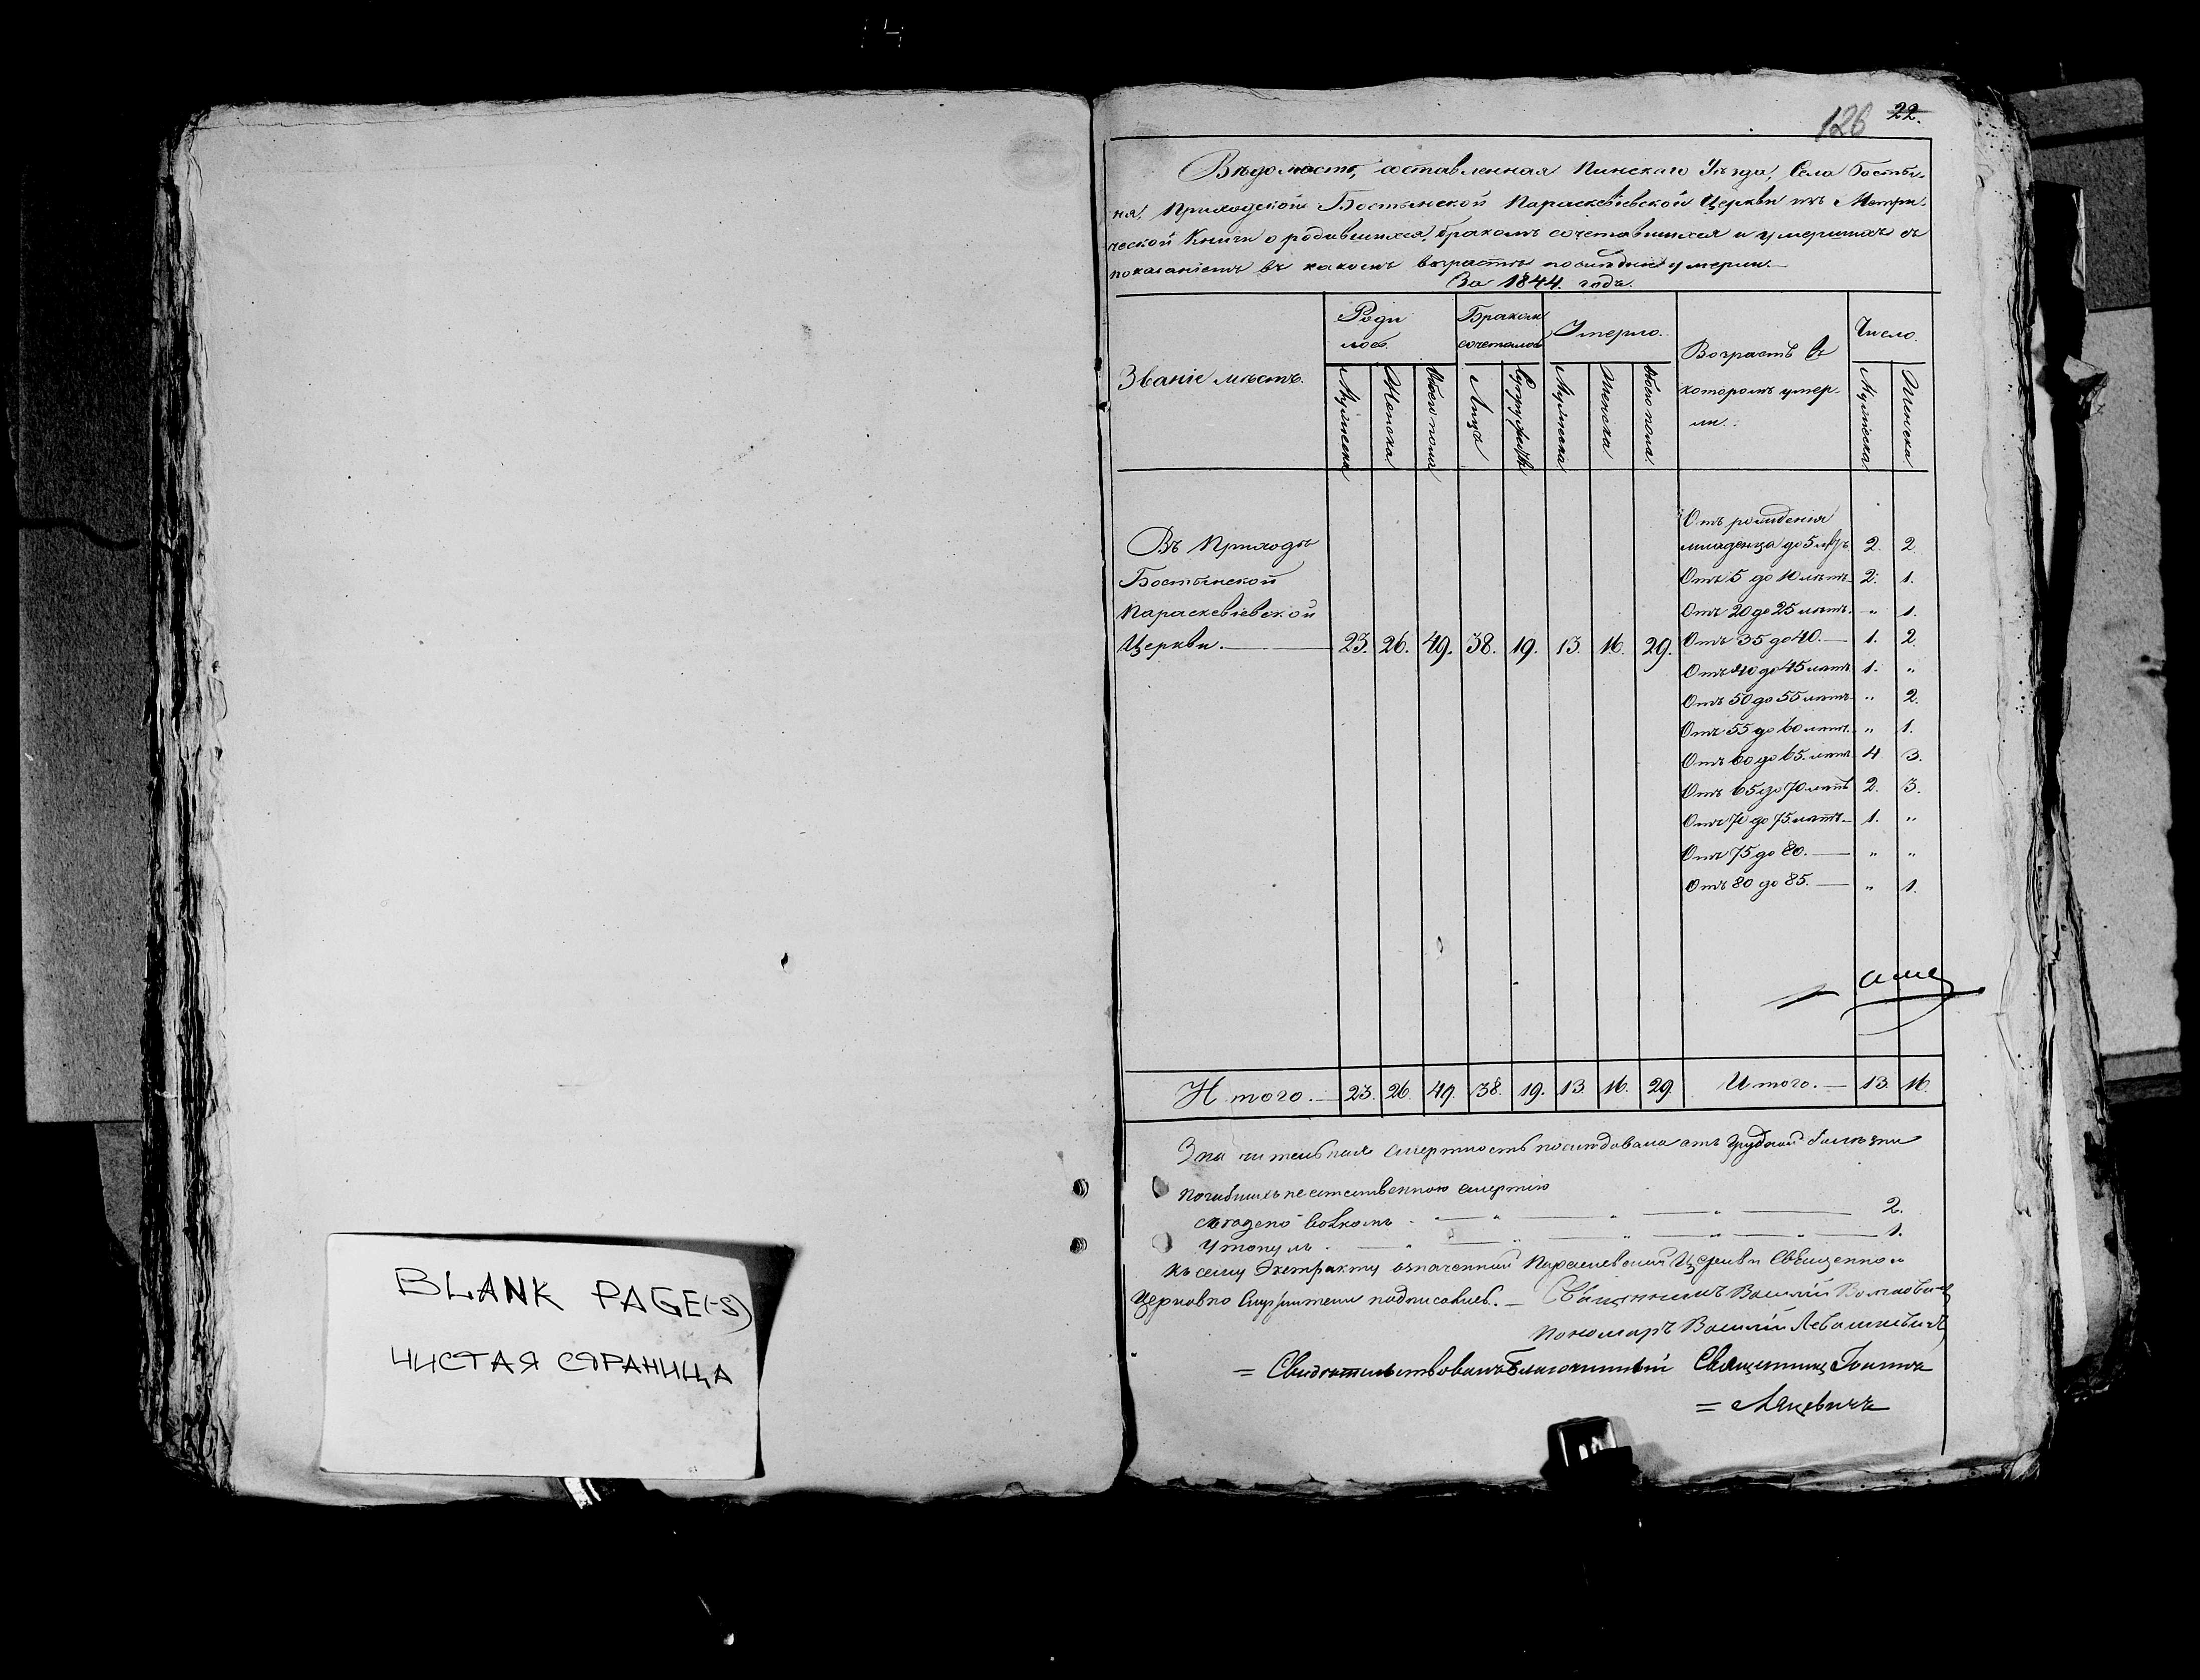 126 22.
Вѣдомость, составленная Пинскаго Уѣзда, Села Босты-
ня, Приходской Бостынской Параскевіевской Церкви изъ Метри-
ческой Книги о родившихся, бракомъ сочетавшихся и умершихъ съ
показаніемъ въ какомъ возрастѣ послѣдніе умерли.—
За 1844. годъ.
Званіе мѣстъ.
Роди
лось.
Бракомъ
сочеталось
Умерло.
Возрастъ въ
которомъ умер-
ли.
Число.
Мужеска Женска Обоего пола Лицъ Мужеска Женска Обоего пола Мужеска Женска
Въ Приходѣ
Бостынской
Параскевіевской
Церкви.— 23. 26. 49. 38. 19. 13. 16. 29.
Отъ рожденія
младенца до 5 лѣтъ 2. 2.
Отъ 5 до 10 лѣтъ 2. 1.
Отъ 20 до 25 лѣтъ. „ 1.
Отъ 35 до 40.— 1. 2.
Отъ 40 до 45 лѣтъ 1. „
Отъ 50 до 55 лѣтъ „ 2.
Отъ 55 до 60 лѣтъ. „ 1.
Отъ 60 до 65. лѣтъ 4 3.
Отъ 65 до 70 лѣтъ 2. 3.
Отъ 70 до 75. лѣтъ.— 1. „
Отъ 75 до 80.— „ „
Отъ 80 до 85.— „ 1.
Итого.— 23. 26. 49. 38. 19. 13. 16. 29 Итого.— 13. 16.
Значительная смертность послѣдовала отъ грудной болѣзни
Погибшихъ неестественною смертію
съѣдено волкомъ 2.
Утонулъ 1.
Къ сему Экстракту означенной Параскевіевской Церкви Священно и
Церковно Служители подписались.— Священникъ Василій
Пономарь Василій Левашкевичъ
= Свидѣтельствовалъ Благочинный Священникъ
= Мацевичъ
BLANK PAGE(-S)
ЧИСТАЯ СТРАНИЦА